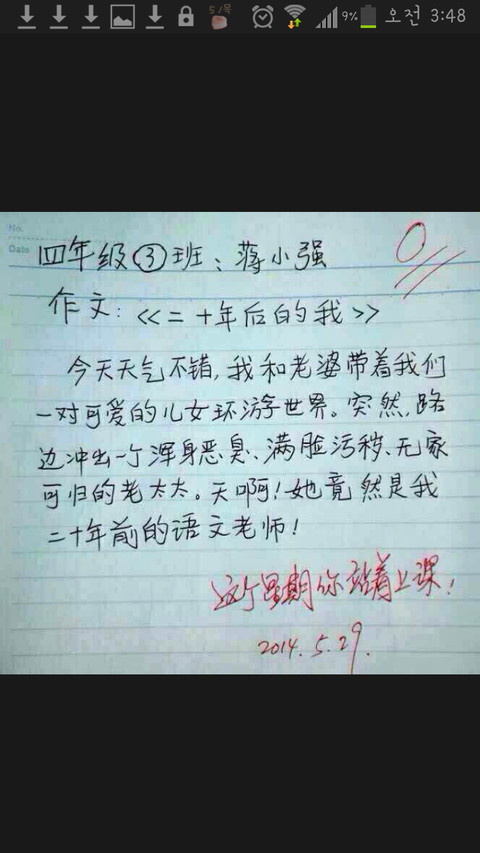 9% 오전 3:48
No.
Date
四年级③班:蒋小强
0
作文:<<二十年后的我>>
今天天气不错,我和老婆带着我们
一对可爱的儿女环游世界。突然,路
边冲出一个浑身恶臭、满脸污秽、无家
可归的老太太。天啊!她竟然是我
二十年前的语文老师!
这个星期你站着上课!
2014.5.29.